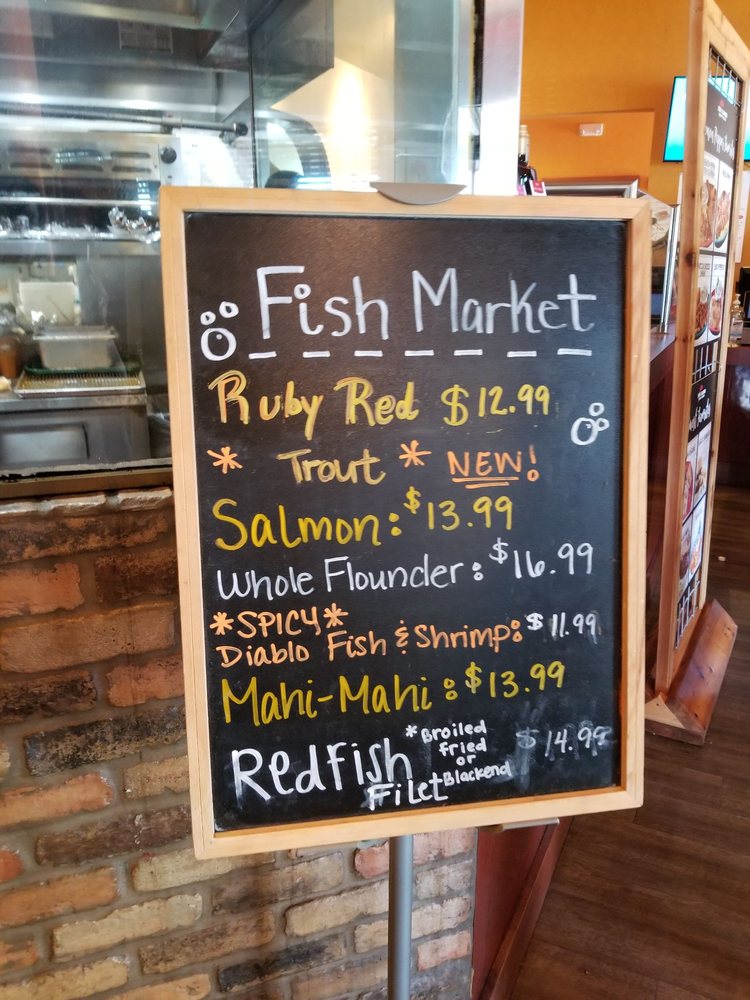 Fish Market
Ruby Red $12.99
* Trout * NEW!
Salmon: $13.99
Whole Flounder: $16.99
*SPICY*
Diablo Fish & Shrimp: $11.99
Mahi-Mahi: $13.99
Redfish *Broiled $14.99
fried
or
Blackend
Filet